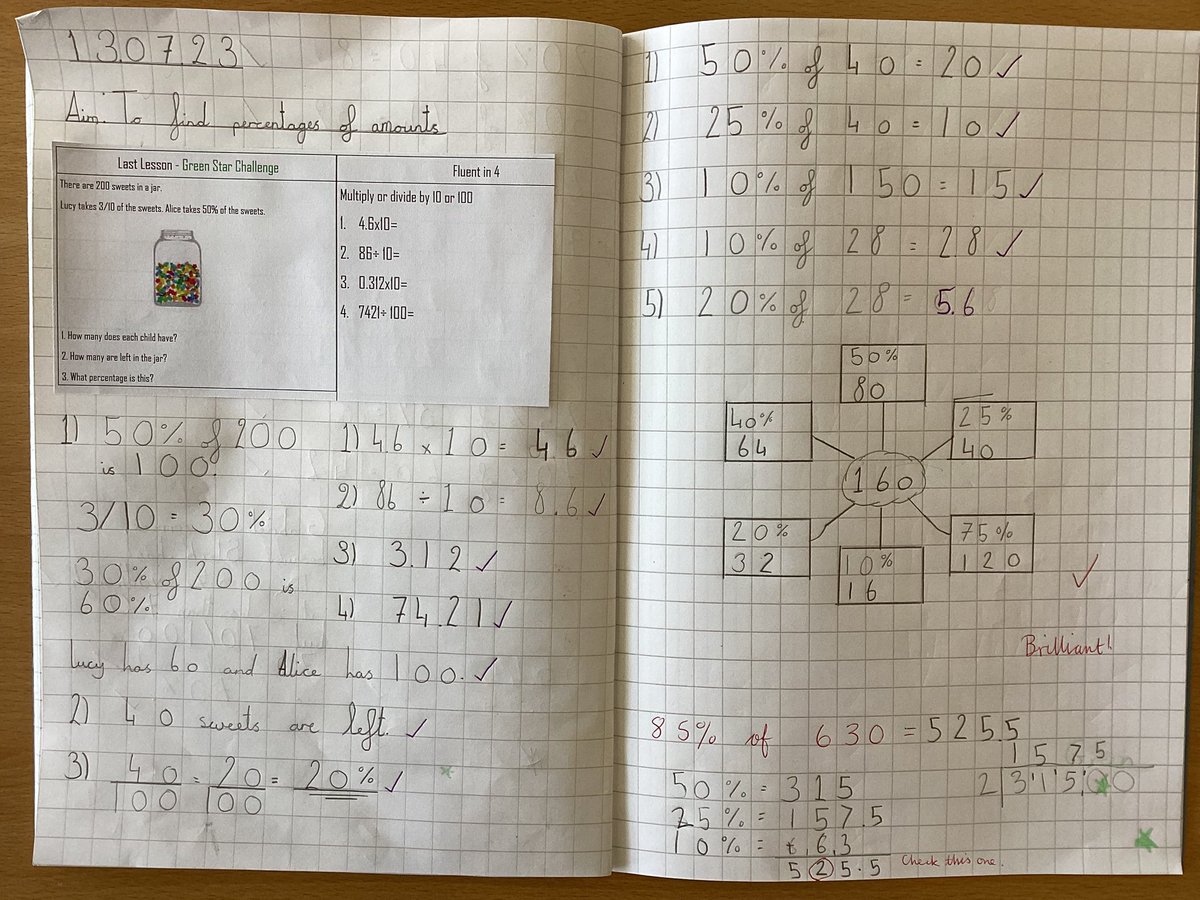 13.07.23
Aim: To find percentages of amounts
Last Lesson - Green Star Challenge
There are 200 sweets in a jar.
Lucy takes 3/10 of the sweets. Alice takes 50% of the sweets.
1. How many does each child have?
2. How many are left in the jar?
3. What percentage is this?
Fluent in 4
Multiply or divide by 10 or 100
1. 4.6x10=
2. 86÷ 10=
3. 0.312x10=
4. 7421÷ 100=
1) 50% of 200
is 100.
3/10 = 30%
30% of 200 is
60%
Lucy has 60 and Alice has 100. ✓
2) 40 sweets are left. ✓
3) 40/100 = 20/100 = 20% ✓
1) 4.6 x 10 = 46 ✓
2) 86 ÷ 10 = 8.6 ✓
3) 3.12 ✓
4) 74.21 ✓
1) 50% of 40 = 20 ✓
2) 25% of 40 = 10 ✓
3) 10% of 150 = 15 ✓
4) 10% of 28 = 2.8 ✓
5) 20% of 28 = 5.6
50%
80
40%
64
25%
40
160
20%
32
10%
16
75%
120
✓
Brilliant!
85% of 630 = 525.5
50% = 315
25% = 157.5
10% = + 63
525.5
Check this one.
157 5
2 3 1 1 1 5.00